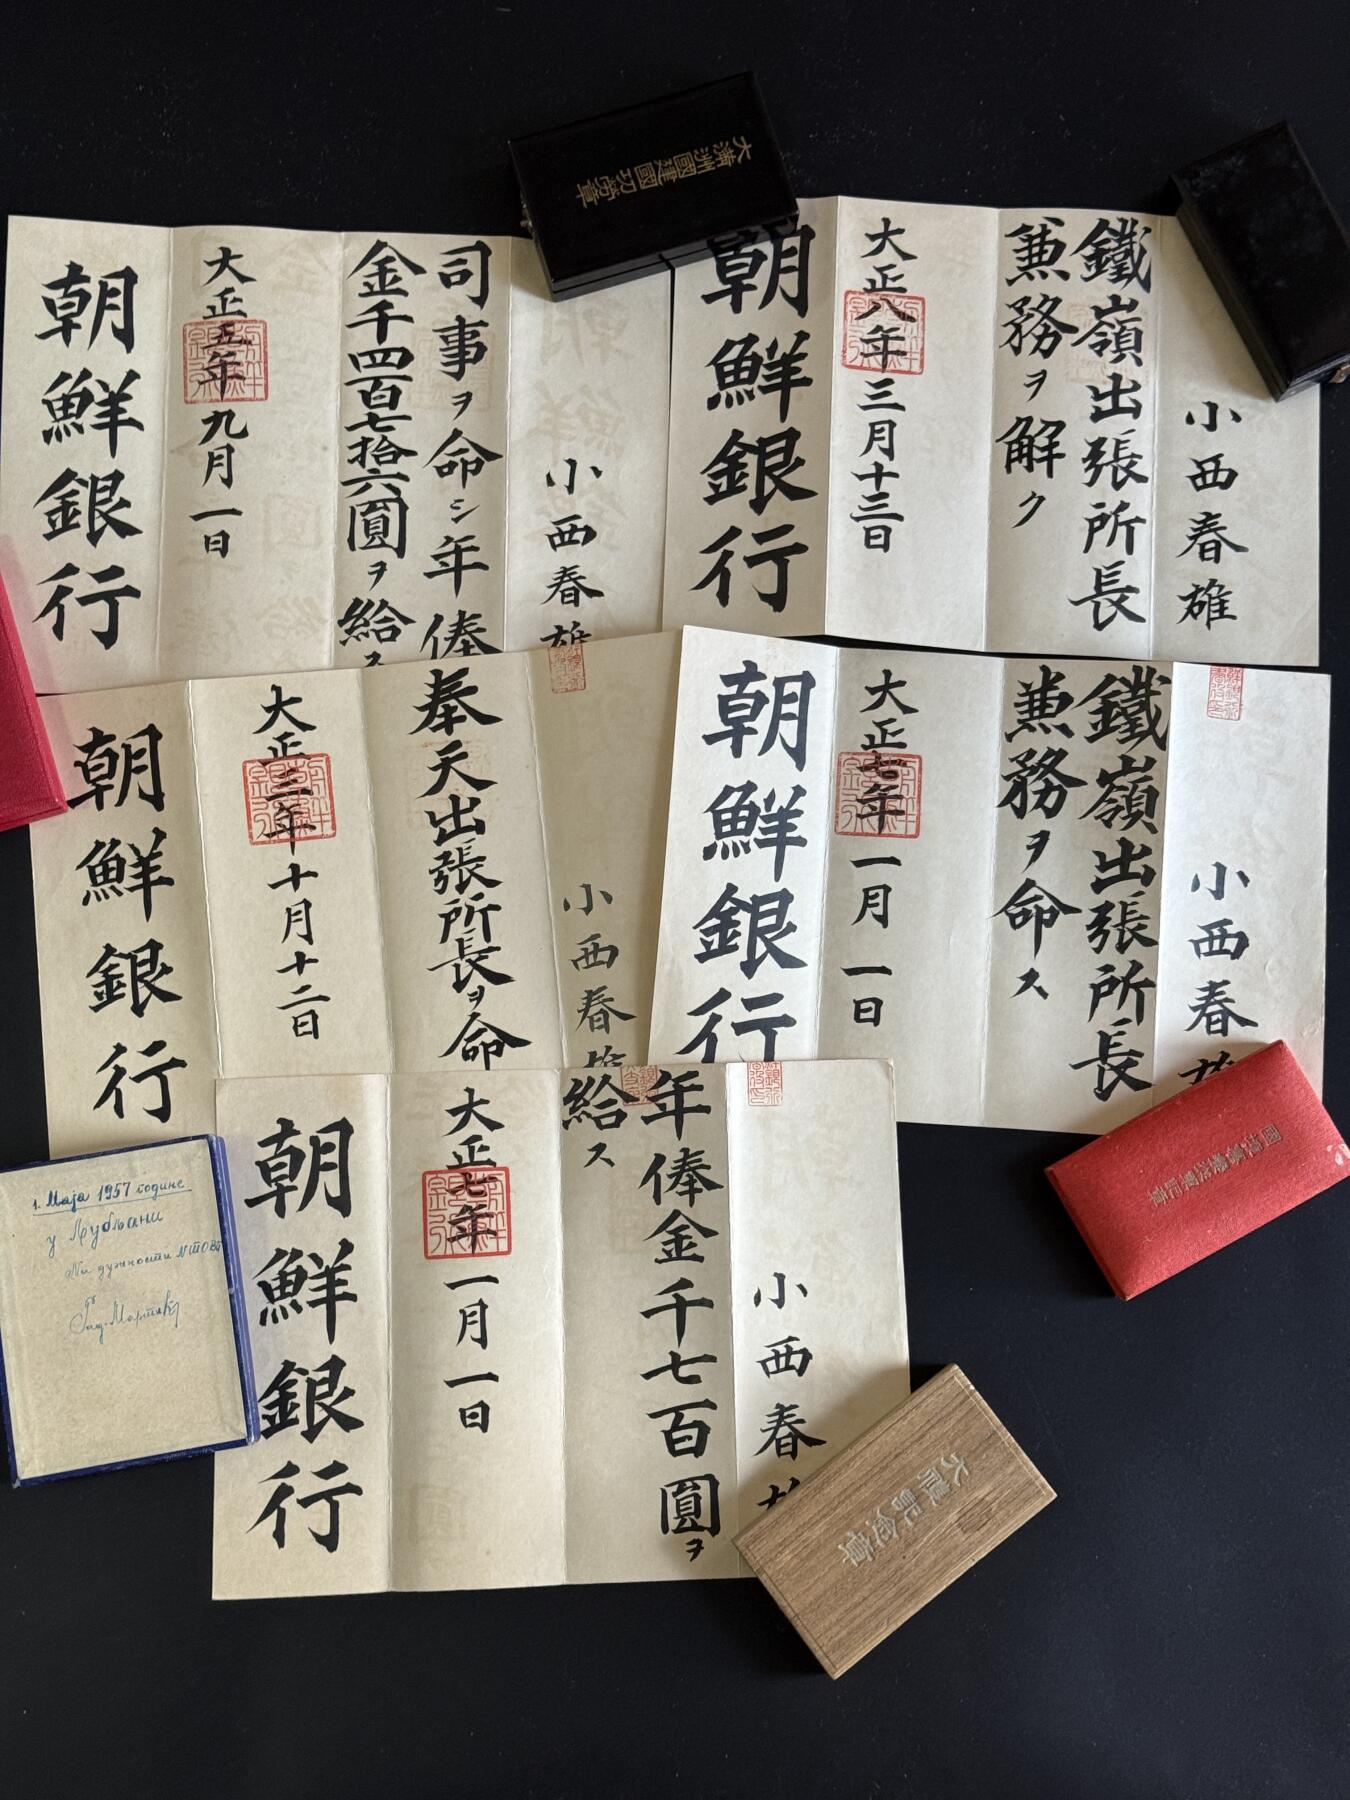 大満洲國建國功労章
小西春雄
司事ヲ命シ年俸
金千四百七拾六圓ヲ給ス
大正五年九月一日
朝鮮銀行
小西春雄
鐵嶺出張所長
兼務ヲ解ク
大正八年三月十三日
朝鮮銀行
小西春雄
奉天出張所長ヲ命
大正三年十月十二日
朝鮮銀行
小西春雄
鐵嶺出張所長
兼務ヲ命ス
大正七年一月一日
朝鮮銀行
小西春雄
年俸金千七百圓ヲ
給ス
大正七年一月一日
朝鮮銀行
1. Маја 1957 године
у Љубљани
На дужности
大禮記念章